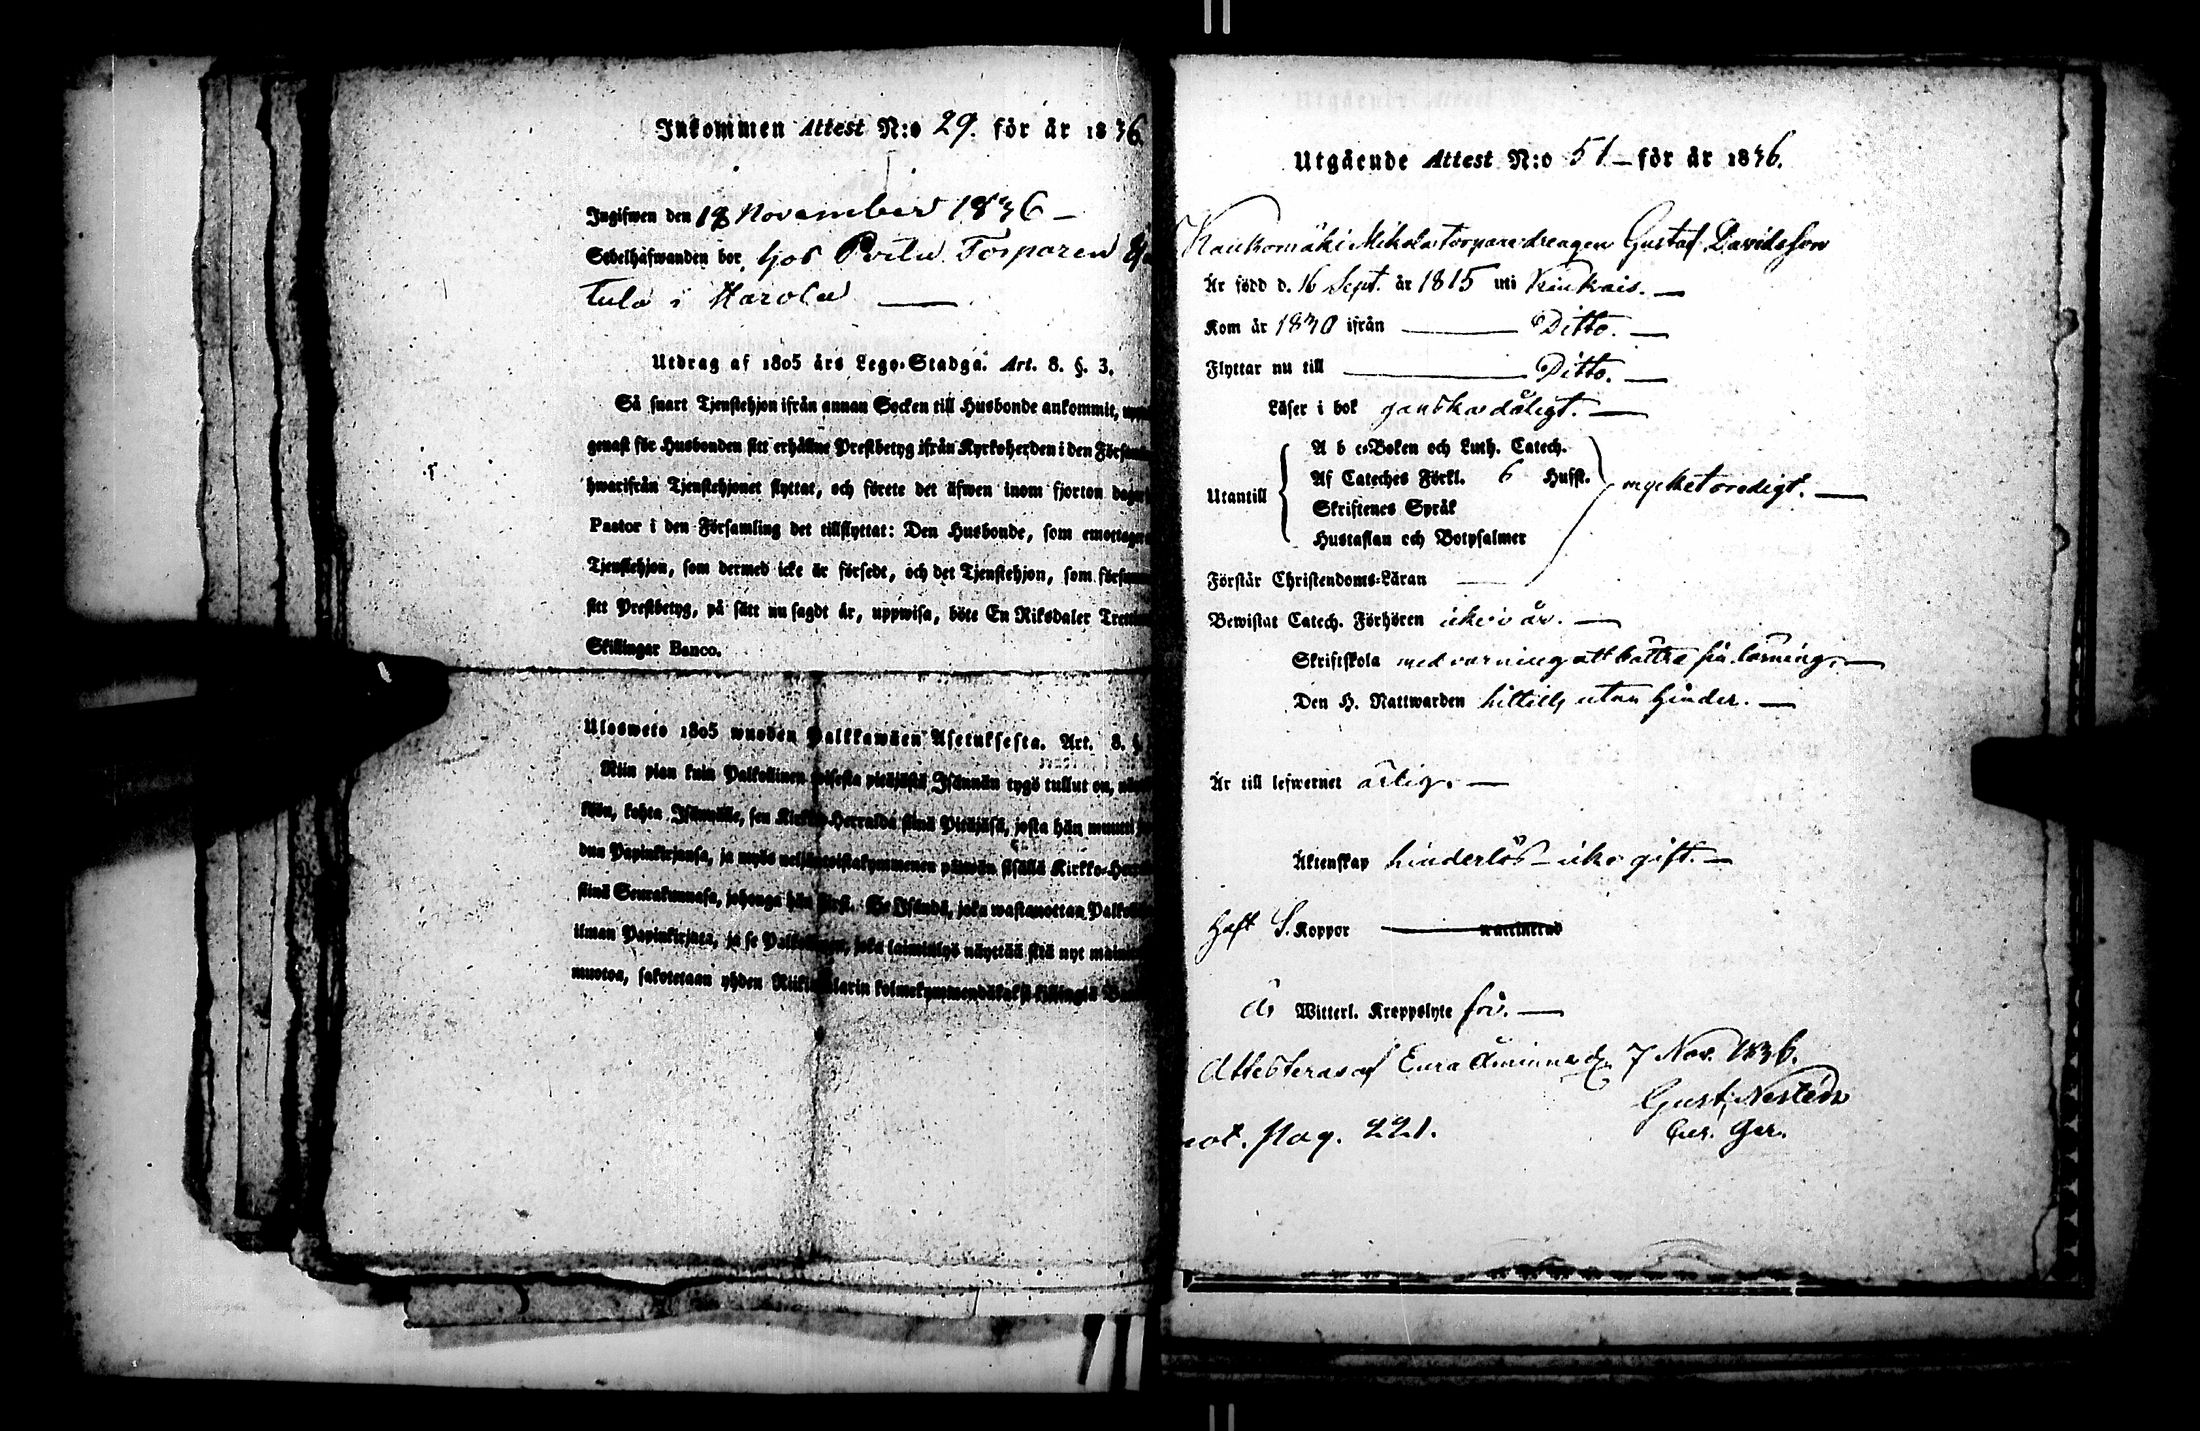 Inkommen Attest N:o 29. för år 1836
Ingifwen den 18 November 1836 –
Sedelhafwanden bor hos Torparen
tula i Harola —
Utdrag af 1805 års Lego-Stadga. Art. 8. §. 3.
Så snart Tjenstehjon ifrån annan Socken till Husbonde ankommit,
genast för Husbonden sitt erhållne Prestbetyg ifrån Kyrkoherden i den
hwarifrån Tjenstehjonet flyttat, och förete det äfwen inom fjorton dagar
Pastor i den Församling det tillflyttat: Den Husbonde, som emottager
Tjenstehjon, som dermed icke är försedt, och det Tjenstehjon, som
sitt Prestbetyg, på sätt nu sagdt är, uppwisa, böte En Riksdaler
Skillingar Banco.
Ulosweto 1805 wuoden Palkkawäen Asetuksesta. Art. 8. §.
Niin pian kuin Palkollinen toisesta pitäjästä Isännän tygö tullut on,
kohta Isännälle, sen Kirkko-Herralda siinä Pitäjäsä, josta hän muutti
dun Papinkirjansa, ja myös neljäntoistakymmenen päiwän sisällä Kirkko-
siinä Seurakunnasa, johonga hän Se Isändä, joka wastanottaa
ilman Papinkirjata, ja se Palkollinen, joka laiminlyö näyttää sitä nyt
muotoa, sakotetaan yhden Riikintalarin kolmekymmendäkaksi killingiä
Utgående Attest N:o 51 – för år 1836.
Kaukomäki Mikola torparedrengen Gustaf Davidsson
Är född d. 16 Sept. år 1815 uti Kiukais. —
Kom år 1830 ifrån — Ditto. —
Flyttar nu till — Ditto. —
Läser i bok ganska dåligt. —
Utantill
A b c-Boken och Luth. Catech.
Af Cateches Förkl. 6 Hufst.
Skriftenes Språk
Hustaflan och Botpsalmer
mycket oredigt. —
Förstår Christendoms-Läran —
Bewistat Catech. Förhören icke i år. —
Skriftskola med varning att bättra sin läsning. —
Den H. Nattwarden hittills utan hinder. —
Är till lefwernet ärlig. —
Äktenskap hinderlös – icke gift. —
Haft S. Koppor — waccinerad
är Witterl. Kroppslyte fri. —
Attesteras af Eura Åminne d. 7 Nov. 1836.
Gust.
not. Pag. 221.